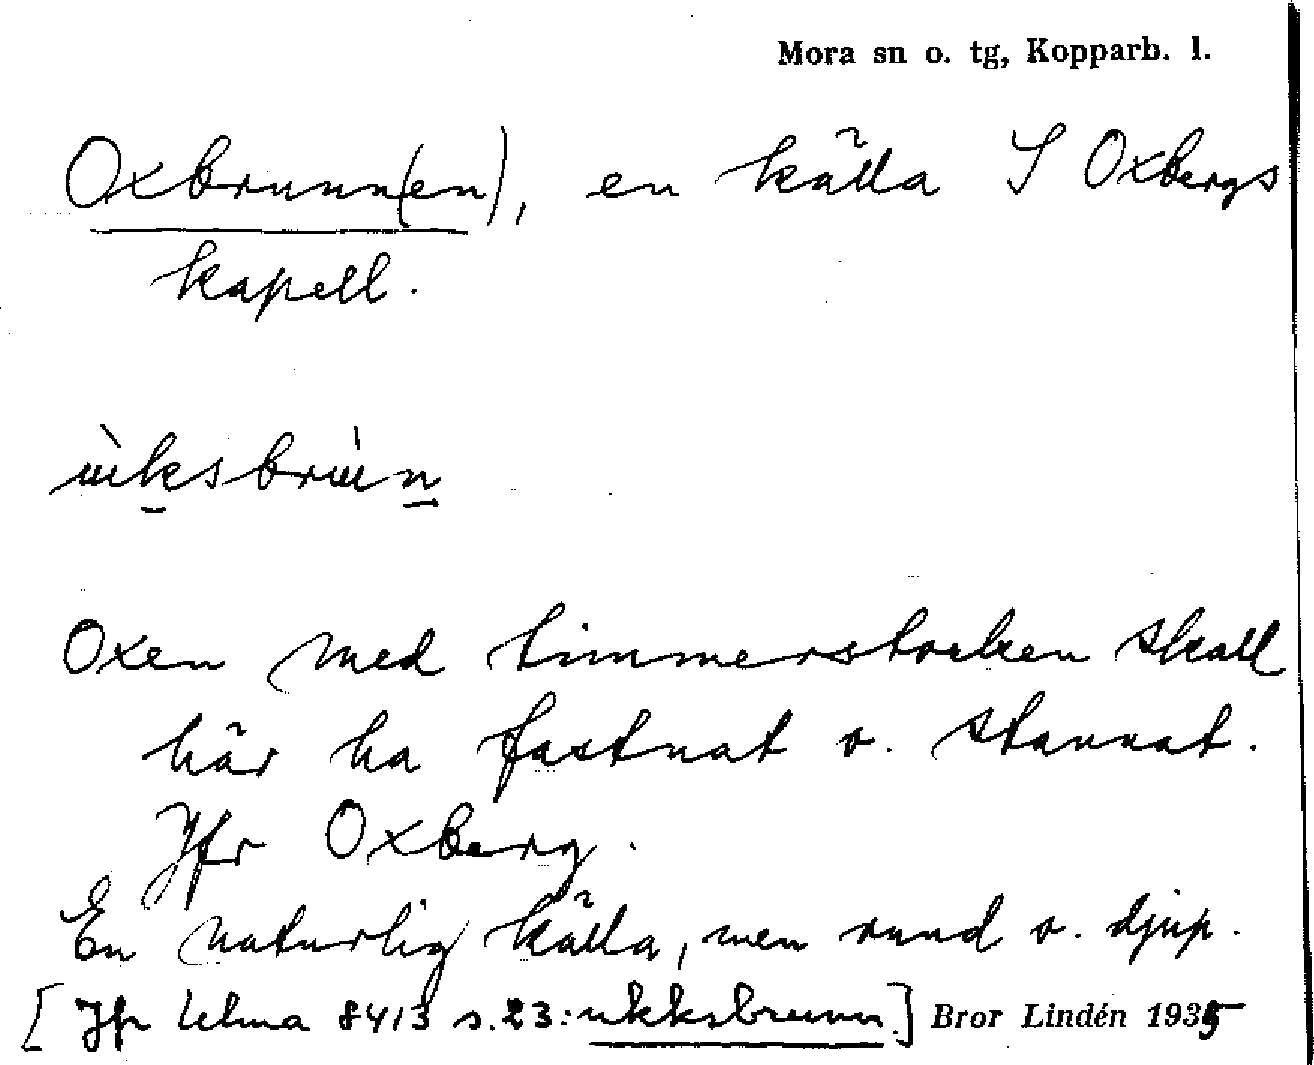 Mora sn o. tg, Kopparb. l.
Oxbrunn(en), en källa S Oxbergs
kapell.
ùksbrùn
Oxen med timmerstocken skall
här ha fastnat o. stannat.
Jfr Oxberg.
En naturlig källa, men rund o. djup.
[Jfr Ulma 8413 s. 23: ukksbrunn.] Bror Lindén 1935